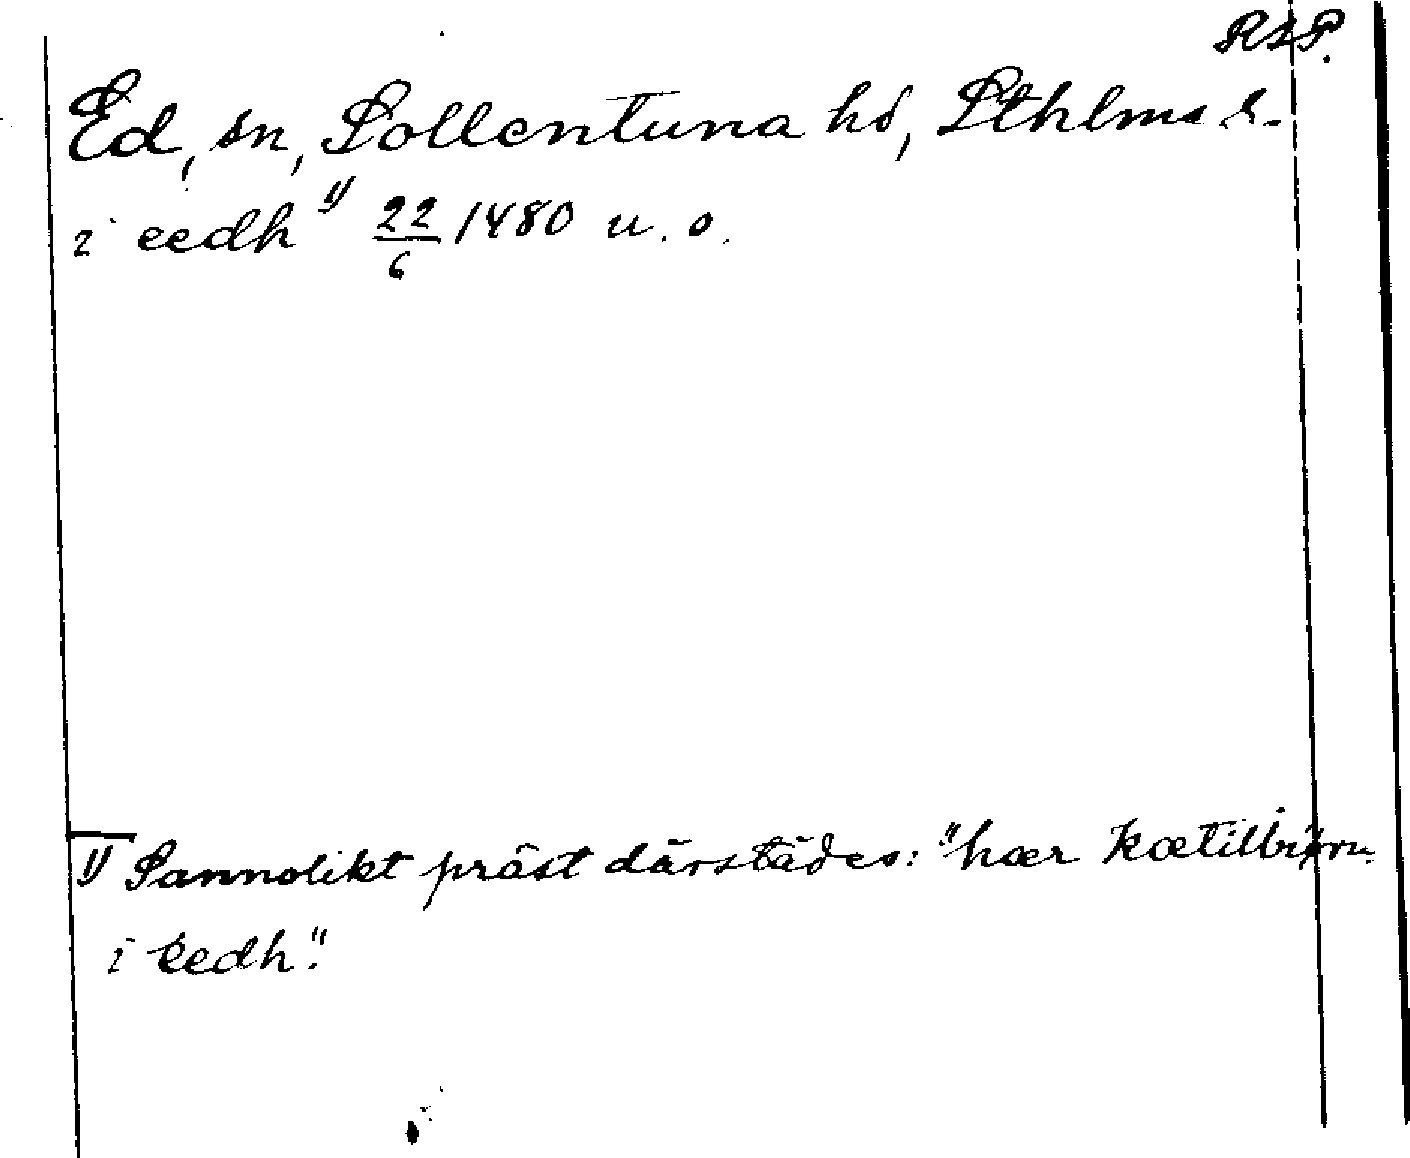 RAP.
Ed, sn, Sollentuna hd, Sthlms l.
i eedh 1) 22/6 1480 u. o.
1) Sannolikt präst därstädes: "hær kætilbiørn
i eedh".